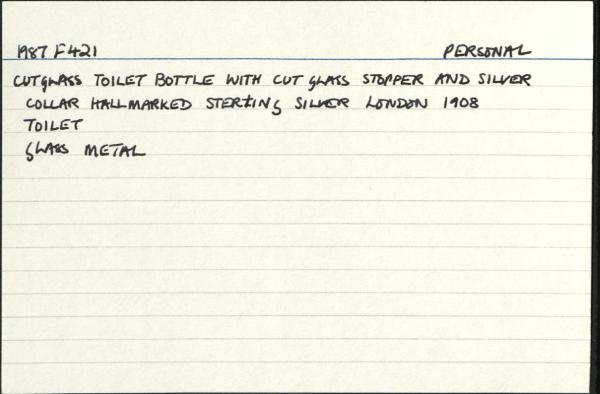 1987 F421 PERSONAL
CUTGLASS TOILET BOTTLE WITH CUT GLASS STOPPER AND SILVER
COLLAR HALLMARKED STERLING SILVER LONDON 1908
TOILET
GLASS METAL